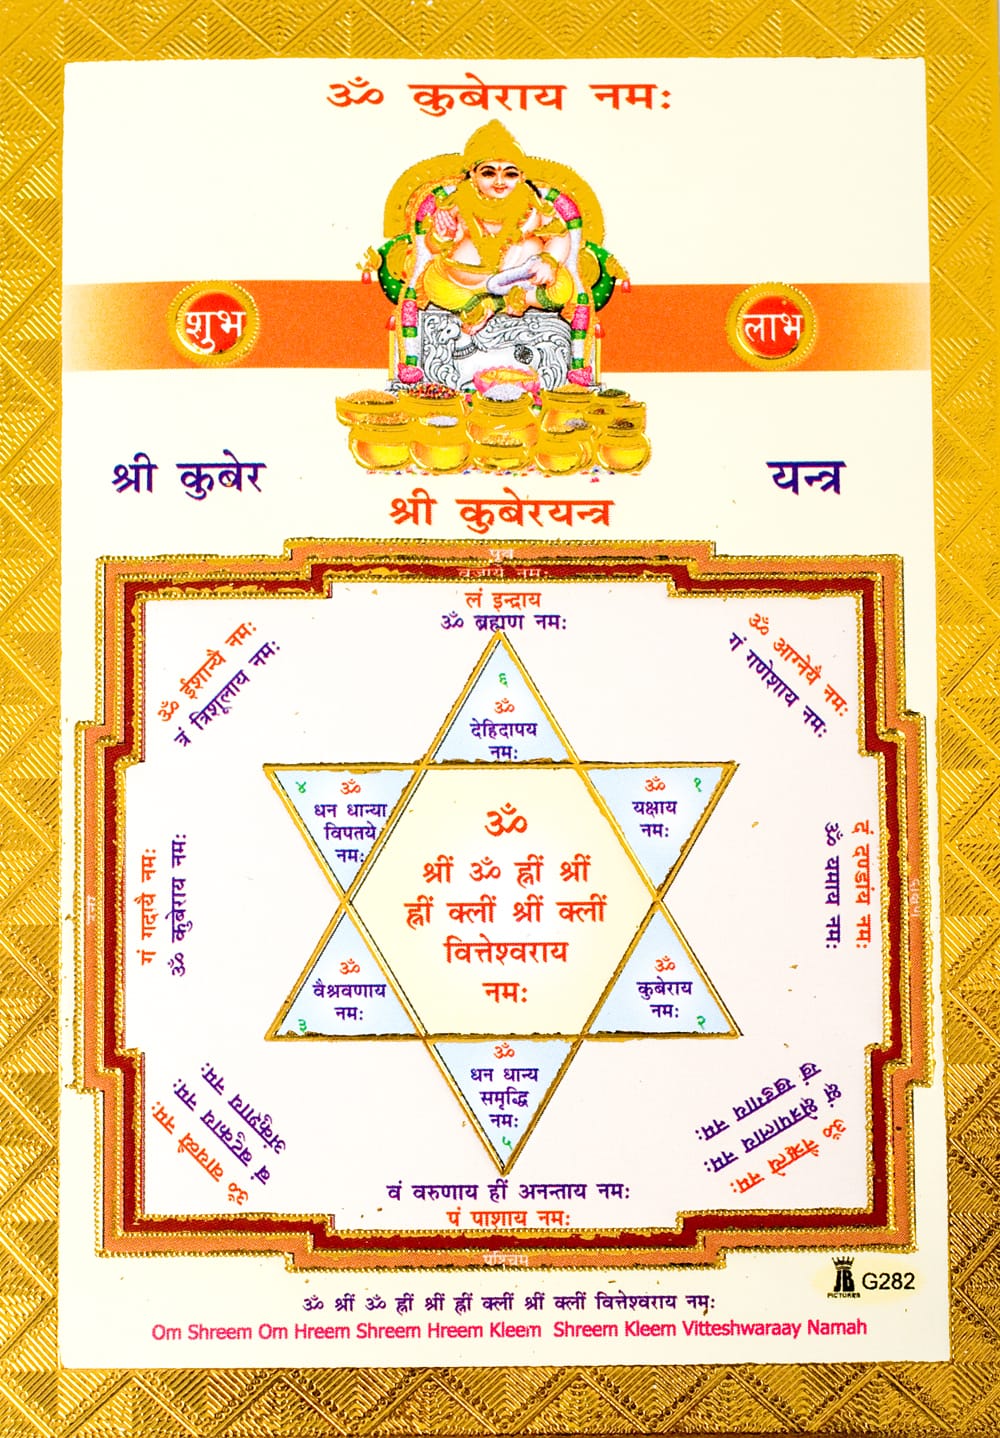 ॐ कुबेराय नमः
शुभ
लाभ
श्री कुबेर
यन्त्र
श्री कुबेरयन्त्र
पुर्व
वज्राये नमः
लं इन्द्राय
ॐ ब्रह्मण नमः
ॐ ईशान्यै नमः
त्रं त्रिशूलाय नमः
ॐ आग्नेयै नमः
गं गणेशाय नमः
६
ॐ
देहिदापय
नमः
४
ॐ
धन धान्या
विपतये
नमः
ॐ
१
यक्षाय
नमः
ॐ
श्रीं ॐ ह्रीं श्रीं
ह्रीं क्लीं श्रीं क्लीं
वित्तेश्वराय
नमः
गं गदायै नमः
ॐ कुबेराय नमः
दं दण्डांय नमः
ॐ यमाय नमः
ॐ
वैश्रवणाय
नमः
३
ॐ
कुबेराय
नमः
२
ॐ
धन धान्य
समृद्धि
नमः
५
ॐ वायव्यै नमः
वं बटुकाय नमः
अंकुशाय नमः
खं खड्गाय नमः
क्षं क्षेत्रपालाय नमः
ॐ नैऋत्ये नमः
वं वरुणाय हीं अनन्ताय नमः
पं पाशाय नमः
पश्चिम
JB
PICTURES
G282
ॐ श्रीं ॐ ह्रीं श्रीं ह्रीं क्लीं श्रीं क्लीं वित्तेश्वराय नमः
Om Shreem Om Hreem Shreem Hreem Kleem Shreem Kleem Vitteshwaraay Namah